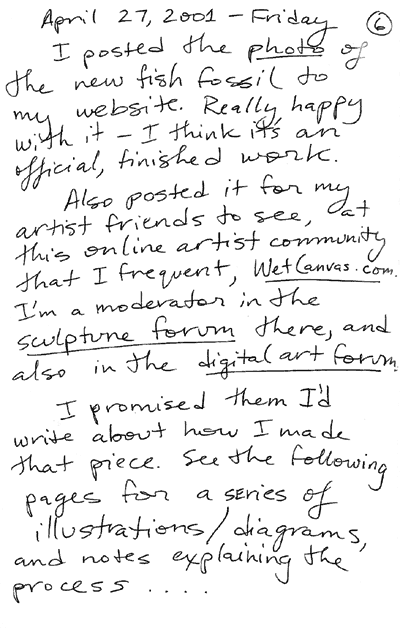 April 27, 2001 – Friday ⑥
I posted the photo of
the new fish fossil to
my website. Really happy
with it – I think it's an
official, finished work.
Also posted it for my
artist friends to see, at
this online artist community
that I frequent, WetCanvas.com.
I'm a moderator in the
sculpture forum there, and
also in the digital art forum.
I promised them I'd
write about how I made
that piece. See the following
pages for a series of
illustrations/diagrams,
and notes explaining the
process ....